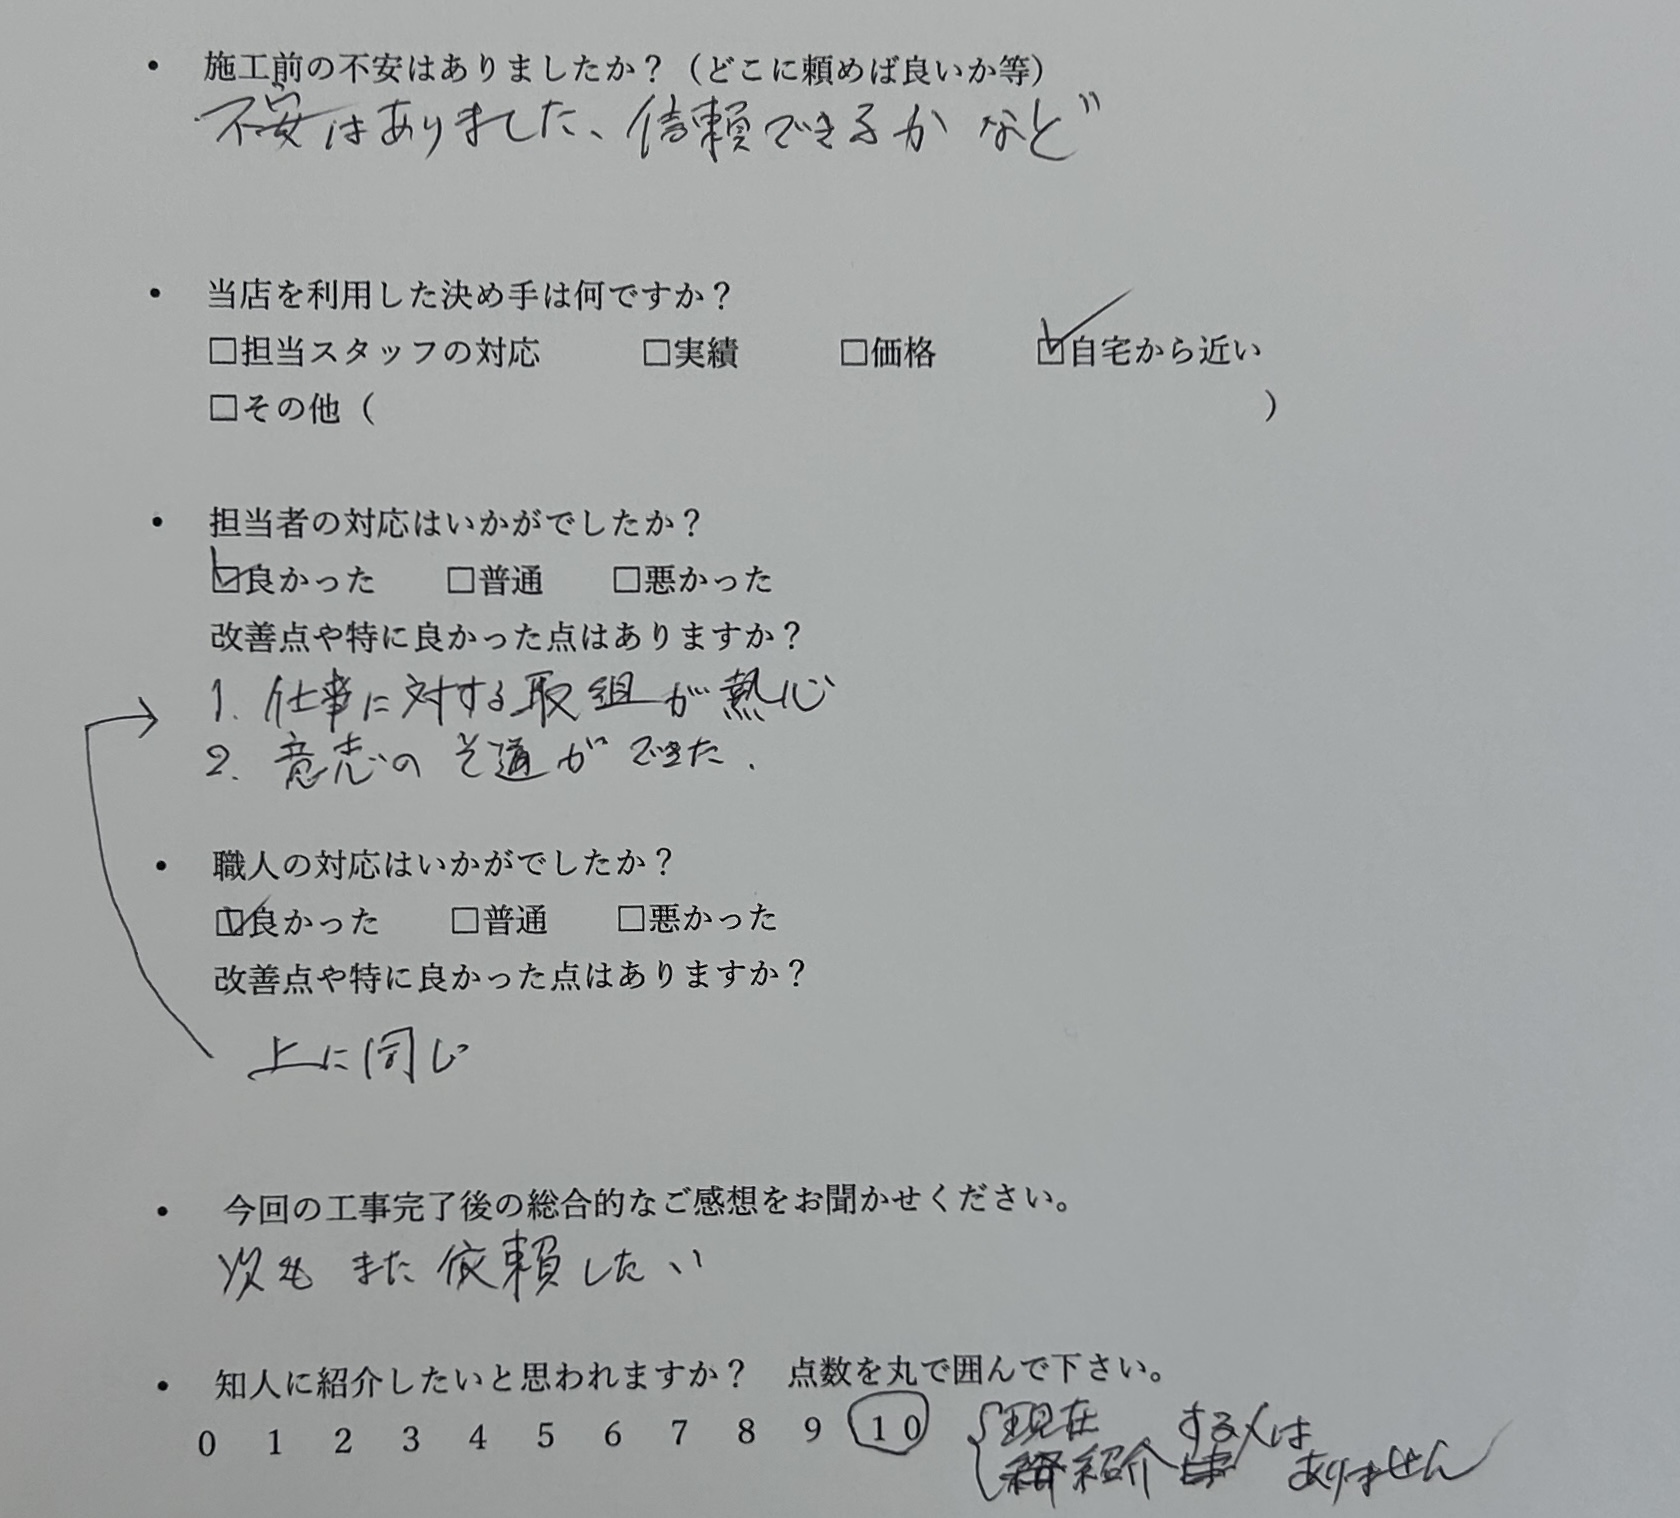 • 施工前の不安はありましたか？（どこに頼めば良いか等）
不安はありました、信頼できるか など
• 当店を利用した決め手は何ですか？
□担当スタッフの対応　□実績　□価格　☑自宅から近い
□その他（　）
• 担当者の対応はいかがでしたか？
☑良かった　□普通　□悪かった
改善点や特に良かった点はありますか？
1. 仕事に対する取組が熱心
2. 意志のそ通ができた.
• 職人の対応はいかがでしたか？
☑良かった　□普通　□悪かった
改善点や特に良かった点はありますか？
上に同じ
• 今回の工事完了後の総合的なご感想をお聞かせください。
次も また 依頼したい
• 知人に紹介したいと思われますか？　点数を丸で囲んで下さい。
0 1 2 3 4 5 6 7 8 9 10
現在
紹介する人はありません